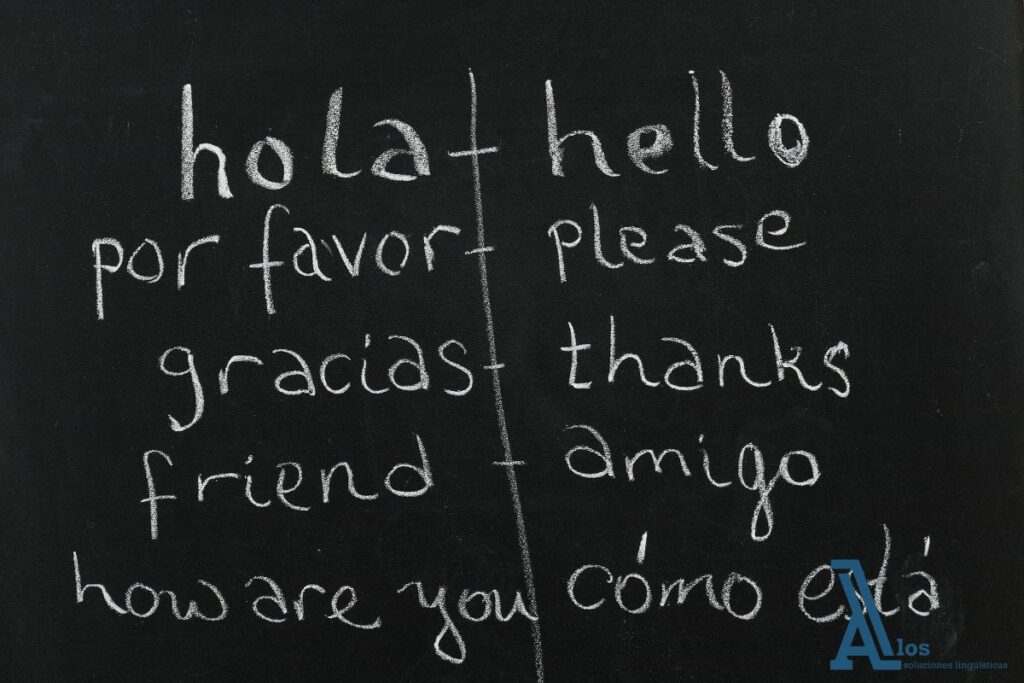 hola - hello
por favor - please
gracias - thanks
friend - amigo
how are you cómo está
Alos
soluciones lingüísticas